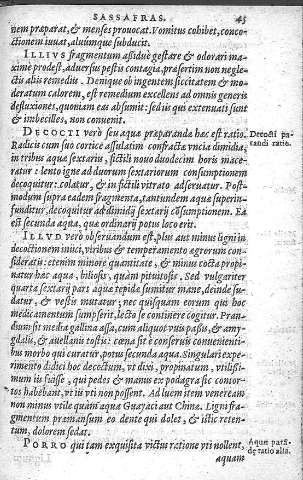 SASSAFRAS. 45
nem præparat, & menses prouocat. Vomitus cohibet, conco-
ctionem iuuat, aluumque subducit.
ILLIVS fragmentum assiduè gestare & odorari ma-
ximè prodest, adversus pestis contagia, præsertim non negle-
ctis aliis remediis. Denique ob ingentem siccitatem & mo-
deratum calorem, est remedium excellens ad omnis generis
defluxiones, quoniam eas absumit: sed iis qui extenuati sunt
& imbecilles, non conuenit.
DECOCTI verò seu aqua præparanda hæc est ratio. Decocti pa-
Radicis cum suo cortice assulatim confractæ vncia dimidia, randi ratio.
in tribus aquæ sextariis, fictili nouo duodecim horis mace-
ratur: lento igne ad duorum sextariorum consumptionem
decoquitur: colatur, & in fictili vitrato adseruatur. Post-
modum supra eadem fragmenta, tantundem aquæ superin-
funditur, decoquitur ad dimidij sextarij cõsumptionem. Ea
est secunda aqua, quæ ordinarij potus loco erit.
ILLVD verò obseruandum est, plus aut minus ligni in
decoctionem iniici, viribus & temperamento ægrorum con-
sideratis: etenim minore quantitate, & minus cocta propi-
natur hæc aqua, biliosis, quàm pituitosis. Sed vulgariter
quarta sextarij pars aquæ tepidæ sumitur mane, deinde su-
datur, & vestis mutatur; nec quisquam eorum qui hoc
medicamentum sumpserit, lecto se continere cogitur. Pran-
dium sit media gallina assa, cum aliquot vuis passis, & amy-
gdalis, & auellanis tostis: cœna sit è conseruis conuenienti-
bus morbo qui curatur, potus secunda aqua. Singulari expe-
rimento didici hoc decoctum, vt dixi, propinatum, vtilissi-
mum iis fuisse, qui pedes & manus ex podagra sic contor-
tos habebant, vt iis vti non possent. Ad luem item veneream
non minus vtile quàm aqua Guayaci aut Chinæ. Ligni fra-
gmentum præmansum eo dente qui dolet, & istic reten-
tum, dolorem sedat.
PORRO qui tam exquisita victus ratione vti nollent, Aquæ paran-
aquam dæ ratio alia.